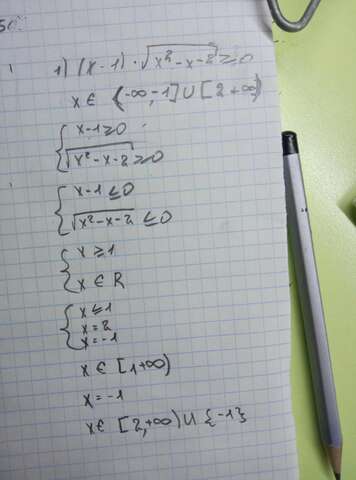 1) (x-1)·√x²-x-2 ≥0
x ∈ (-∞,-1] ∪ [2+∞)
{ x-1≥0
√x²-x-2 ≥0
{ x-1 ≤0
√x²-x-2 ≤0
{ x ≥1
x ∈ R
{ x ≤1
x=2
x=-1
x ∈ [1+∞)
x=-1
x∈ [2,+∞) ∪ {-1}